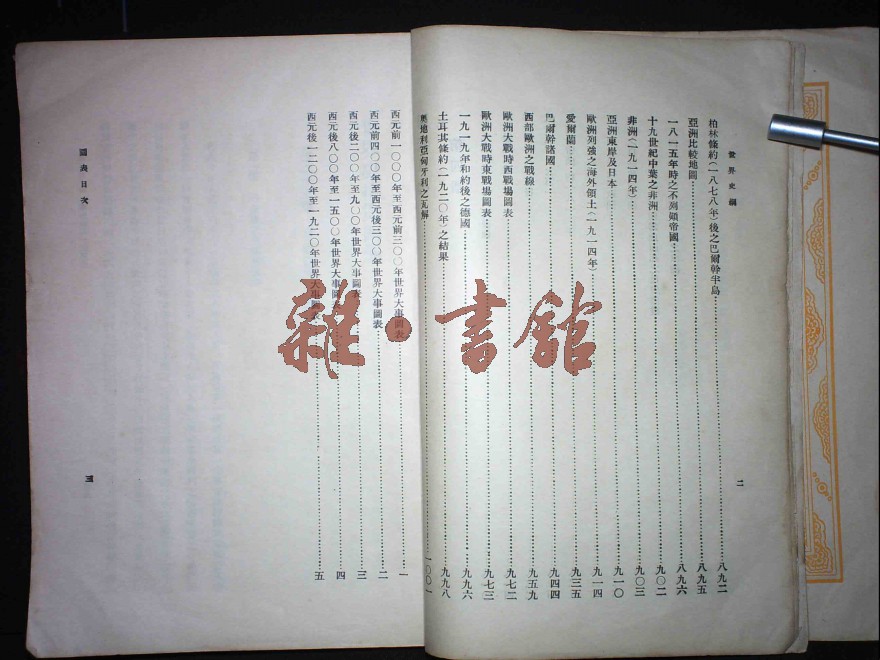 世界史綱
二
柏林條約(一八七八年)後之巴爾幹半島……八九二
亞洲比較地圖……八九五
一八一五年時之不列顛帝國……八九六
十九世紀中葉之非洲……九〇二
非洲(一九一四年)……九〇三
亞洲東岸及日本……九一〇
歐洲列強之海外領土(一九一四年)……九一四
愛爾蘭……九三五
巴爾幹諸國……九四四
西部歐洲之戰線……九五九
歐洲大戰時西戰場圖表……九七二
歐洲大戰時東戰場圖表……九七三
一九一九年和約後之德國……九九六
土耳其條約(一九二〇年)之結果……九九八
奧地利亞匈牙利之瓦解……一〇〇一
西元前一〇〇〇年至西元前三〇〇年世界大事圖表……一
西元前四〇〇年至西元後三〇〇年世界大事圖表……二
西元後二〇〇年至九〇〇年世界大事圖表……三
西元後八〇〇年至一五〇〇年世界大事圖表……四
西元後一二〇〇年至一九二〇年世界大事圖表……五
圖表目次
三
雜·書館